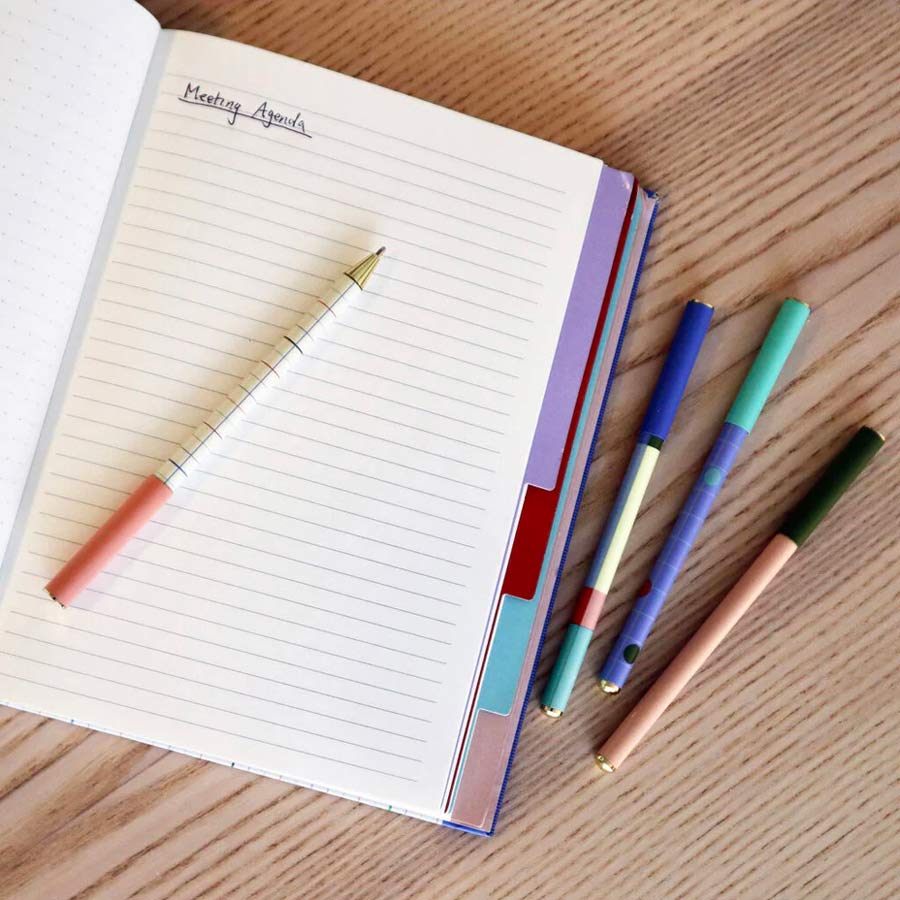 Meeting Agenda